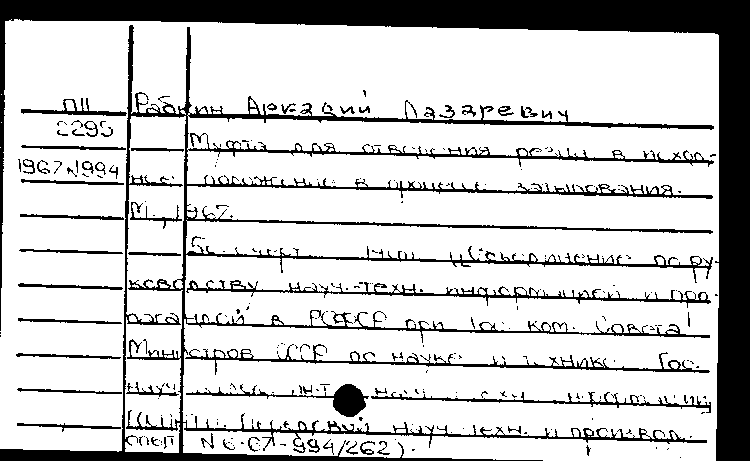 П11 Рабкин, Аркадий Лазаревич
2295
Муфта для отведения резца в исход-
1967 N994 ное положение в процессе затылования.
М., 1967.
5с. с черт. (Объединение по ру-
ководству науч.-техн. информацией и про-
пагандой в РСФСР при Гос. ком. Совета
Министров СССР по науке и технике. Гос.
науч. науч. техн. информации
Передовой науч.-техн. и производ.
опыт N 6-67-994/262).